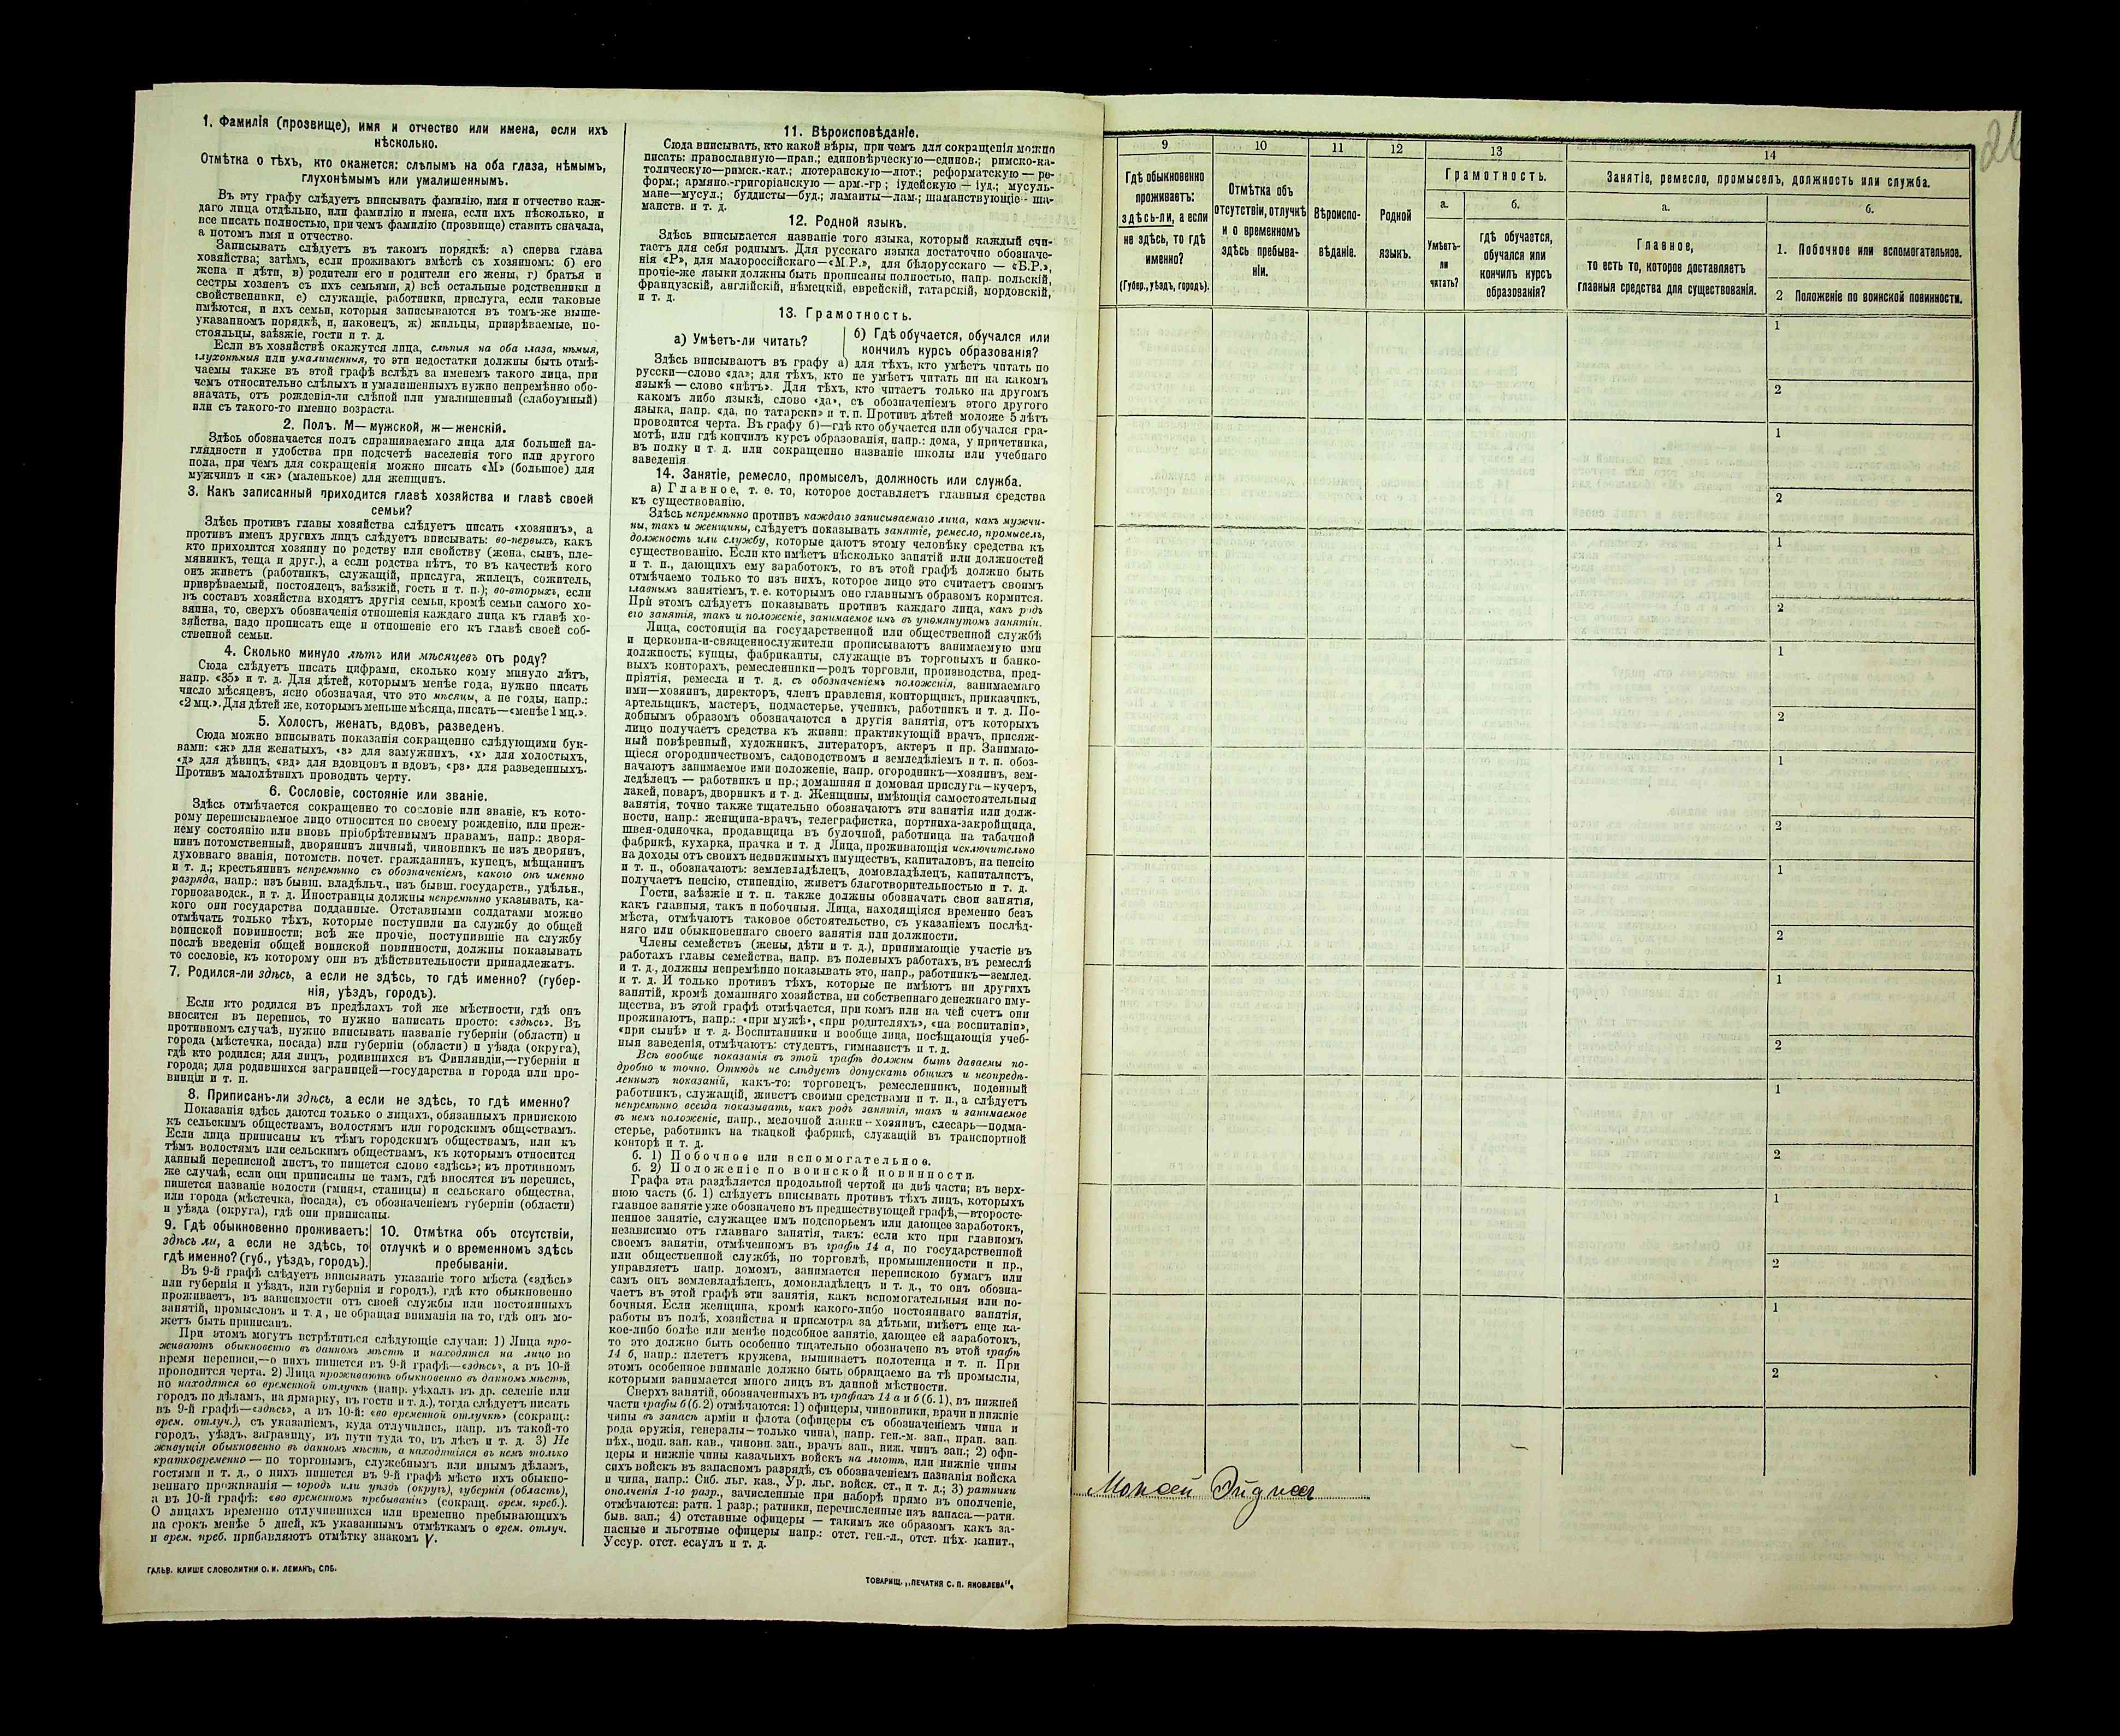 1. Фамилія (прозвище), имя и отчество или имена, если ихъ
нѣсколько.
Отмѣтка о тѣхъ, кто окажется: слѣпымъ на оба глаза, нѣмымъ,
глухонѣмымъ или умалишеннымъ.
Въ эту графу слѣдуетъ вписывать фамилію, имя и отчество каж-
даго лица отдѣльно, или фамилію и имена, если ихъ нѣсколько, и
все писать полностью, при чемъ фамилію (прозвище) ставить сначала,
а потомъ имя и отчество.
Записывать слѣдуетъ въ такомъ порядкѣ: а) сперва глава
хозяйства; затѣмъ, если проживаютъ вмѣстѣ съ хозяиномъ: б) его
жена и дѣти, в) родители его и родители его жены, г) братья и
сестры хозяевъ съ ихъ семьями, д) всѣ остальные родственники и
свойственники, е) служащіе, работники, прислуга, если таковые
имѣются, и ихъ семьи, которыя записываются въ томъ-же выше-
указанномъ порядкѣ, и, наконецъ, ж) жильцы, призрѣваемые, по-
стояльцы, заѣзжіе, гости и т. д.
Если въ хозяйствѣ окажутся лица, слѣпыя на оба глаза, нѣмыя,
глухонѣмыя или умалишенныя, то эти недостатки должны быть отмѣ-
чаемы также въ этой графѣ вслѣдъ за именемъ такого лица, при
чемъ относительно слѣпыхъ и умалишенныхъ нужно непремѣнно обо-
значать, отъ рожденія-ли слѣпой или умалишенный (слабоумный)
или съ такого-то именно возраста.
2. Полъ. М—мужской, ж—женскій.
Здѣсь обозначается полъ спрашиваемаго лица для большей на-
глядности и удобства при подсчетѣ населенія того или другого
пола, при чемъ для сокращенія можно писать «М» (большое) для
мужчинъ и «ж» (маленькое) для женщинъ.
3. Какъ записанный приходится главѣ хозяйства и главѣ своей
семьи?
Здѣсь противъ главы хозяйства слѣдуетъ писать «хозяинъ», а
противъ именъ другихъ лицъ слѣдуетъ вписывать: во-первыхъ, какъ
кто приходится хозяину по родству или свойству (жена, сынъ, пле-
мянникъ, теща и друг.), а если родства нѣтъ, то въ качествѣ кого
онъ живетъ (работникъ, служащій, прислуга, жилецъ, сожитель,
призрѣваемый, постоялецъ, заѣзжій, гость и т. п.); во-вторыхъ, если
въ составъ хозяйства входятъ другія семьи, кромѣ семьи самого хо-
зяина, то, сверхъ обозначенія отношенія каждаго лица къ главѣ хо-
зяйства, надо прописать еще и отношеніе его къ главѣ своей соб-
ственной семьи.
4. Сколько минуло лѣтъ или мѣсяцевъ отъ роду?
Сюда слѣдуетъ писать цифрами, сколько кому минуло лѣтъ,
напр. «35» и т. д. Для дѣтей, которымъ менѣе года, нужно писать
число мѣсяцевъ, ясно обозначая, что это мѣсяцы, а не годы, напр.:
«2 мц.». Для дѣтей же, которымъ меньше мѣсяца, писать—«менѣе 1 мц.».
5. Холостъ, женатъ, вдовъ, разведенъ.
Сюда можно вписывать показанія сокращенно слѣдующими бук-
вами: «ж» для женатыхъ, «з» для замужнихъ, «х» для холостыхъ,
«д» для дѣвицъ, «вд» для вдовцовъ и вдовъ, «рз» для разведенныхъ.
Противъ малолѣтнихъ проводить черту.
6. Сословіе, состояніе или званіе.
Здѣсь отмѣчается сокращенно то сословіе или званіе, къ кото-
рому переписываемое лицо относится по своему рожденію, или преж-
нему состоянію или вновь пріобрѣтеннымъ правамъ, напр.: дворя-
нинъ потомственный, дворянинъ личный, чиновникъ не изъ дворянъ,
духовнаго званія, потомств. почет. гражданинъ, купецъ, мѣщанинъ
и т. д.; крестьянинъ непремѣнно съ обозначеніемъ, какого онъ именно
разряда, напр.: изъ бывш. владѣльч., изъ бывш. государств., удѣльн.,
горнозаводск., и т. д. Иностранцы должны непремѣнно указывать, ка-
кого они государства подданные. Отставными солдатами можно
отмѣчать только тѣхъ, которые поступили на службу до общей
воинской повинности; всѣ же прочіе, поступившіе на службу
послѣ введенія общей воинской повинности, должны показывать
то сословіе, къ которому они въ дѣйствительности принадлежатъ.
7. Родился-ли здѣсь, а если не здѣсь, то гдѣ именно? (губер-
нія, уѣздъ, городъ).
Если кто родился въ предѣлахъ той же мѣстности, гдѣ онъ
вносится въ перепись, то нужно написать просто: «здѣсь». Въ
противномъ случаѣ, нужно вписывать названіе губерніи (области) и
города (мѣстечка, посада) или губерніи (области) и уѣзда (округа),
гдѣ кто родился; для лицъ, родившихся въ Финляндіи,—губерніи и
города; для родившихся заграницей—государства и города или про-
винціи и т. п.
8. Приписанъ-ли здѣсь, а если не здѣсь, то гдѣ именно?
Показанія здѣсь даются только о лицахъ, обязанныхъ припискою
къ сельскимъ обществамъ, волостямъ или городскимъ обществамъ.
Если лица приписаны къ тѣмъ городскимъ обществамъ, или къ
тѣмъ волостямъ или сельскимъ обществамъ, къ которымъ относится
данный переписной листъ, то пишется слово «здѣсь»; въ противномъ
же случаѣ, если они приписаны не тамъ, гдѣ вносятся въ перепись,
пишется названіе волости (гмины, станицы) и сельскаго общества,
или города (мѣстечка, посада), съ обозначеніемъ губерніи (области)
и уѣзда (округа), гдѣ они приписаны.
9. Гдѣ обыкновенно проживаетъ:
здѣсь ли, а если не здѣсь, то
гдѣ именно? (губ., уѣздъ, городъ).
10. Отмѣтка объ отсутствіи,
отлучкѣ и о временномъ здѣсь
пребываніи.
Въ 9-й графѣ слѣдуетъ вписывать указаніе того мѣста («здѣсь»
или губернія и уѣздъ, или губернія и городъ), гдѣ кто обыкновенно
проживаетъ, въ зависимости отъ своей службы или постоянныхъ
занятій, промысловъ и т. д., не обращая вниманія на то, гдѣ онъ мо-
жетъ быть приписанъ.
При этомъ могутъ встрѣтиться слѣдующіе случаи: 1) Лица про-
живаютъ обыкновенно въ данномъ мѣстѣ и находятся на лицо во
время переписи,—о нихъ пишется въ 9-й графѣ—«здѣсь», а въ 10-й
проводится черта. 2) Лица проживаютъ обыкновенно въ данномъ мѣстѣ,
но находятся во временной отлучкѣ (напр. уѣхалъ въ др. селеніе или
городъ по дѣламъ, на ярмарку, въ гости и т. д.), тогда слѣдуетъ писать
въ 9-й графѣ—«здѣсь», а въ 10-й: «во временной отлучкѣ» (сокращ.:
врем. отлуч.), съ указаніемъ, куда отлучились, напр. въ такой-то
городъ, уѣздъ, заграницу, въ пути туда то, въ лѣсъ и т. д. 3) Не
живущія обыкновенно въ данномъ мѣстѣ, а находящіяся въ немъ только
кратковременно — по торговымъ, служебнымъ или инымъ дѣламъ,
гостями и т. д., о нихъ пишется въ 9-й графѣ мѣсто ихъ обыкно-
веннаго проживанія — городъ или уѣздъ (округъ), губернія (область),
а въ 10-й графѣ: «во временномъ пребываніи» (сокращ. врем. преб.).
О лицахъ временно отлучившихся или временно пребывающихъ
на срокъ менѣе 5 дней, къ указаннымъ отмѣткамъ о врем. отлуч.
и врем. преб. прибавляютъ отмѣтку знакомъ V.
ГАЛЬВ. КЛИШЕ СЛОВОЛИТНИ О. И. ЛЕМАНЪ, СПБ.
11. Вѣроисповѣданіе.
Сюда вписывать, кто какой вѣры, при чемъ для сокращенія можно
писать: православную—прав.; единовѣрческую—единов.; римско-ка-
толическую—римск.-кат.; лютеранскую—лют.; реформатскую — ре-
форм.; армяно.-григоріанскую — арм.-гр; іудейскую — іуд.; мусуль-
мане—мусул.; буддисты—буд.; ламаиты—лам.; шаманствующіе — ша-
манств. и т. д.
12. Родной языкъ.
Здѣсь вписывается названіе того языка, который каждый счи-
таетъ для себя роднымъ. Для русскаго языка достаточно обозначе-
нія «Р», для малороссійскаго—«М.Р.», для бѣлорусскаго — «Б.Р.»,
прочіе-же языки должны быть прописаны полностью, напр. польскій,
французскій, англійскій, нѣмецкій, еврейскій, татарскій, мордовскій,
и т. д.
13. Грамотность.
а) Умѣетъ-ли читать?
б) Гдѣ обучается, обучался или
кончилъ курсъ образованія?
Здѣсь вписываютъ въ графу а) для тѣхъ, кто умѣетъ читать по
русски—слово «да»; для тѣхъ, кто не умѣетъ читать ни на какомъ
языкѣ — слово «нѣтъ». Для тѣхъ, кто читаетъ только на другомъ
какомъ либо языкѣ, слово «да», съ обозначеніемъ этого другого
языка, напр. «да, по татарски» и т. п. Противъ дѣтей моложе 5 лѣтъ
проводится черта. Въ графу б)—гдѣ кто обучается или обучался гра-
мотѣ, или гдѣ кончилъ курсъ образованія, напр.: дома, у причетника,
въ полку и т. д. или сокращенно названіе школы или учебнаго
заведенія.
14. Занятіе, ремесло, промыселъ, должность или служба.
а) Главное, т. е. то, которое доставляетъ главныя средства
къ существованію.
Здѣсь непремѣнно противъ каждаго записываемаго лица, какъ мужчи-
ны, такъ и женщины, слѣдуетъ показывать занятіе, ремесло, промыселъ,
должность или службу, которые даютъ этому человѣку средства къ
существованію. Если кто имѣетъ нѣсколько занятій или должностей
и т. п., дающихъ ему заработокъ, то въ этой графѣ должно быть
отмѣчаемо только то изъ нихъ, которое лицо это считаетъ своимъ
главнымъ занятіемъ, т. е. которымъ оно главнымъ образомъ кормится.
При этомъ слѣдуетъ показывать противъ каждаго лица, какъ родъ
его занятія, такъ и положеніе, занимаемое имъ въ упомянутомъ занятіи.
Лица, состоящія на государственной или общественной службѣ
и церковна-и-священнослужители прописываютъ занимаемую ими
должность; купцы, фабриканты, служащіе въ торговыхъ и банко-
выхъ конторахъ, ремесленники—родъ торговли, производства, пред-
пріятія, ремесла и т. д. съ обозначеніемъ положенія, занимаемаго
ими—хозяинъ, директоръ, членъ правленія, конторщикъ, приказчикъ,
артельщикъ, мастеръ, подмастерье, ученикъ, работникъ и т. д. По-
добнымъ образомъ обозначаются и другія занятія, отъ которыхъ
лицо получаетъ средства къ жизни: практикующій врачъ, присяж-
ный повѣренный, художникъ, литераторъ, актеръ и пр. Занимаю-
щіеся огородничествомъ, садоводствомъ и земледѣліемъ и т. п. обоз-
начаютъ занимаемое ими положеніе, напр. огородникъ—хозяинъ, зем-
ледѣлецъ — работникъ и пр.; домашняя и домовая прислуга—кучеръ,
лакей, поваръ, дворникъ и т. д. Женщины, имѣющія самостоятельныя
занятія, точно также тщательно обозначаютъ эти занятія или долж-
ности, напр.: женщина-врачъ, телеграфистка, портниха-закройщица,
швея-одиночка, продавщица въ булочной, работница на табачной
фабрикѣ, кухарка, прачка и т. д. Лица, проживающія исключительно
на доходы отъ своихъ недвижимыхъ имуществъ, капиталовъ, на пенсію
и т. п., обозначаютъ: землевладѣлецъ, домовладѣлецъ, капиталистъ,
получаетъ пенсію, стипендію, живетъ благотворительностью и т. д.
Гости, заѣзжіе и т. п. также должны обозначать свои занятія,
какъ главныя, такъ и побочныя. Лица, находящіяся временно безъ
мѣста, отмѣчаютъ таковое обстоятельство, съ указаніемъ послѣд-
няго или обыкновеннаго своего занятія или должности.
Члены семействъ (жены, дѣти и т. д.), принимающіе участіе въ
работахъ главы семейства, напр. въ полевыхъ работахъ, въ ремеслѣ
и т. д., должны непремѣнно показывать это, напр., работникъ—землед.
и т. д. И только противъ тѣхъ, которые не имѣютъ ни другихъ
занятій, кромѣ домашняго хозяйства, ни собственнаго денежнаго иму-
щества, въ этой графѣ отмѣчается, при комъ или на чей счетъ они
проживаютъ, напр.: «при мужѣ», «при родителяхъ», «на воспитаніи»,
«при сынѣ» и т. д. Воспитанники и вообще лица, посѣщающія учеб-
ныя заведенія, отмѣчаютъ: студентъ, гимназистъ и т. д.
Всѣ вообще показанія въ этой графѣ должны быть даваемы по-
дробно и точно. Отнюдь не слѣдуетъ допускать общихъ и неопредѣ-
ленныхъ показаній, какъ-то: торговецъ, ремесленникъ, поденный
работникъ, служащій, живетъ своими средствами и т. п., а слѣдуетъ
непремѣнно всегда показывать, какъ родъ занятія, такъ и занимаемое
въ немъ положеніе, напр., мелочной лавки — хозяинъ, слесарь—подма-
стерье, работникъ на ткацкой фабрикѣ, служащій въ транспортной
конторѣ и т. д.
б. 1) Побочное или вспомогательное.
б. 2) Положеніе по воинской повинности.
Графа эта раздѣляется продольной чертой на двѣ части; въ верх-
нюю часть (б. 1) слѣдуетъ вписывать противъ тѣхъ лицъ, которыхъ
главное занятіе уже обозначено въ предшествующей графѣ,—второсте-
пенное занятіе, служащее имъ подспорьемъ или дающее заработокъ,
независимо отъ главнаго занятія, такъ: если кто при главномъ
своемъ занятіи, отмѣченномъ въ графѣ 14 а, по государственной
или общественной службѣ, по торговлѣ, промышленности и пр.,
управляетъ напр. домомъ, занимается перепискою бумагъ или
самъ онъ землевладѣлецъ, домовладѣлецъ и т. д., то онъ обозна-
чаетъ въ этой графѣ эти занятія, какъ вспомогательныя или по-
бочныя. Если женщина, кромѣ какого-либо постояннаго занятія,
работы въ полѣ, хозяйства и присмотра за дѣтьми, имѣетъ еще ка-
кое-либо болѣе или менѣе подсобное занятіе, дающее ей заработокъ,
то это должно быть особенно тщательно обозначено въ этой графѣ
14 б, напр.: плететъ кружева, вышиваетъ полотенца и т. п. При
этомъ особенное вниманіе должно быть обращаемо на тѣ промыслы,
которыми занимается много лицъ въ данной мѣстности.
Сверхъ занятій, обозначенныхъ въ графахъ 14 а и б (б. 1), въ нижней
части графы б (б. 2) отмѣчаются: 1) офицеры, чиновники, врачи и нижніе
чины въ запасѣ арміи и флота (офицеры съ обозначеніемъ чина и
рода оружія, генералы—только чина), напр. ген.-м. зап., прап. зап.
пѣх., подп. зап. кав., чиновн. зап., врачъ зап., ниж. чинъ зап.; 2) офи-
церы и нижніе чины казачьихъ войскъ на льготѣ, или нижніе чины
сихъ войскъ въ запасномъ разрядѣ, съ обозначеніемъ названія войска
и чина, напр.: Сиб. льг. каз., Ур. льг. войск. ст., и т. д.; 3) ратники
ополченія 1-го разр., зачисленные при наборѣ прямо въ ополченіе,
отмѣчаются: ратн. 1 разр.; ратники, перечисленные изъ запаса.—ратн.
быв. зап.; 4) отставные офицеры — такимъ же образомъ какъ за-
пасные и льготные офицеры напр.: отст. ген.-л., отст. пѣх. капит.,
Уссур. отст. есаулъ и т. д.
ТОВАРИЩ. „ПЕЧАТНЯ С. П. ЯКОВЛЕВА“,
9
10
11
12
13
14
Гдѣ обыкновенно
проживаетъ:
здѣсь-ли, а если
не здѣсь, то гдѣ
именно?
(Губер., уѣздъ, городъ).
Отмѣтка объ
отсутствіи, отлучкѣ
и о временномъ
здѣсь пребыва-
ніи.
Вѣроиспо-
вѣданіе.
Родной
языкъ.
Грамотность.
а.
Умѣетъ-
ли
читать?
б.
гдѣ обучается,
обучался или
кончилъ курсъ
образованія?
Занятіе, ремесло, промыселъ, должность или служба.
а.
Главное,
то есть то, которое доставляетъ
главныя средства для существованія.
б.
1. Побочное или вспомогательное.
2 Положеніе по воинской повинности.
1
2
1
2
1
2
1
2
1
2
1
2
1
2
1
2
1
2
1
2